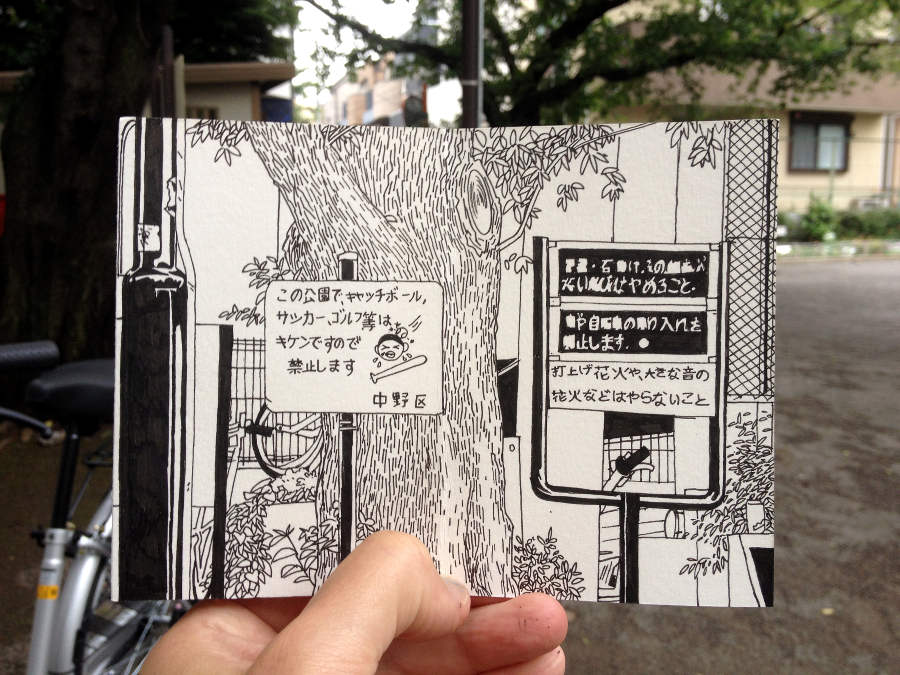 この公園で、キャッチボール,
サッカー、ゴルフ等は
キケンですので
禁止します
中野区
石
やめること.
や自転車の乗り入れを
禁止します.
打上げ花火や、大きな音の
花火などはやらないこと